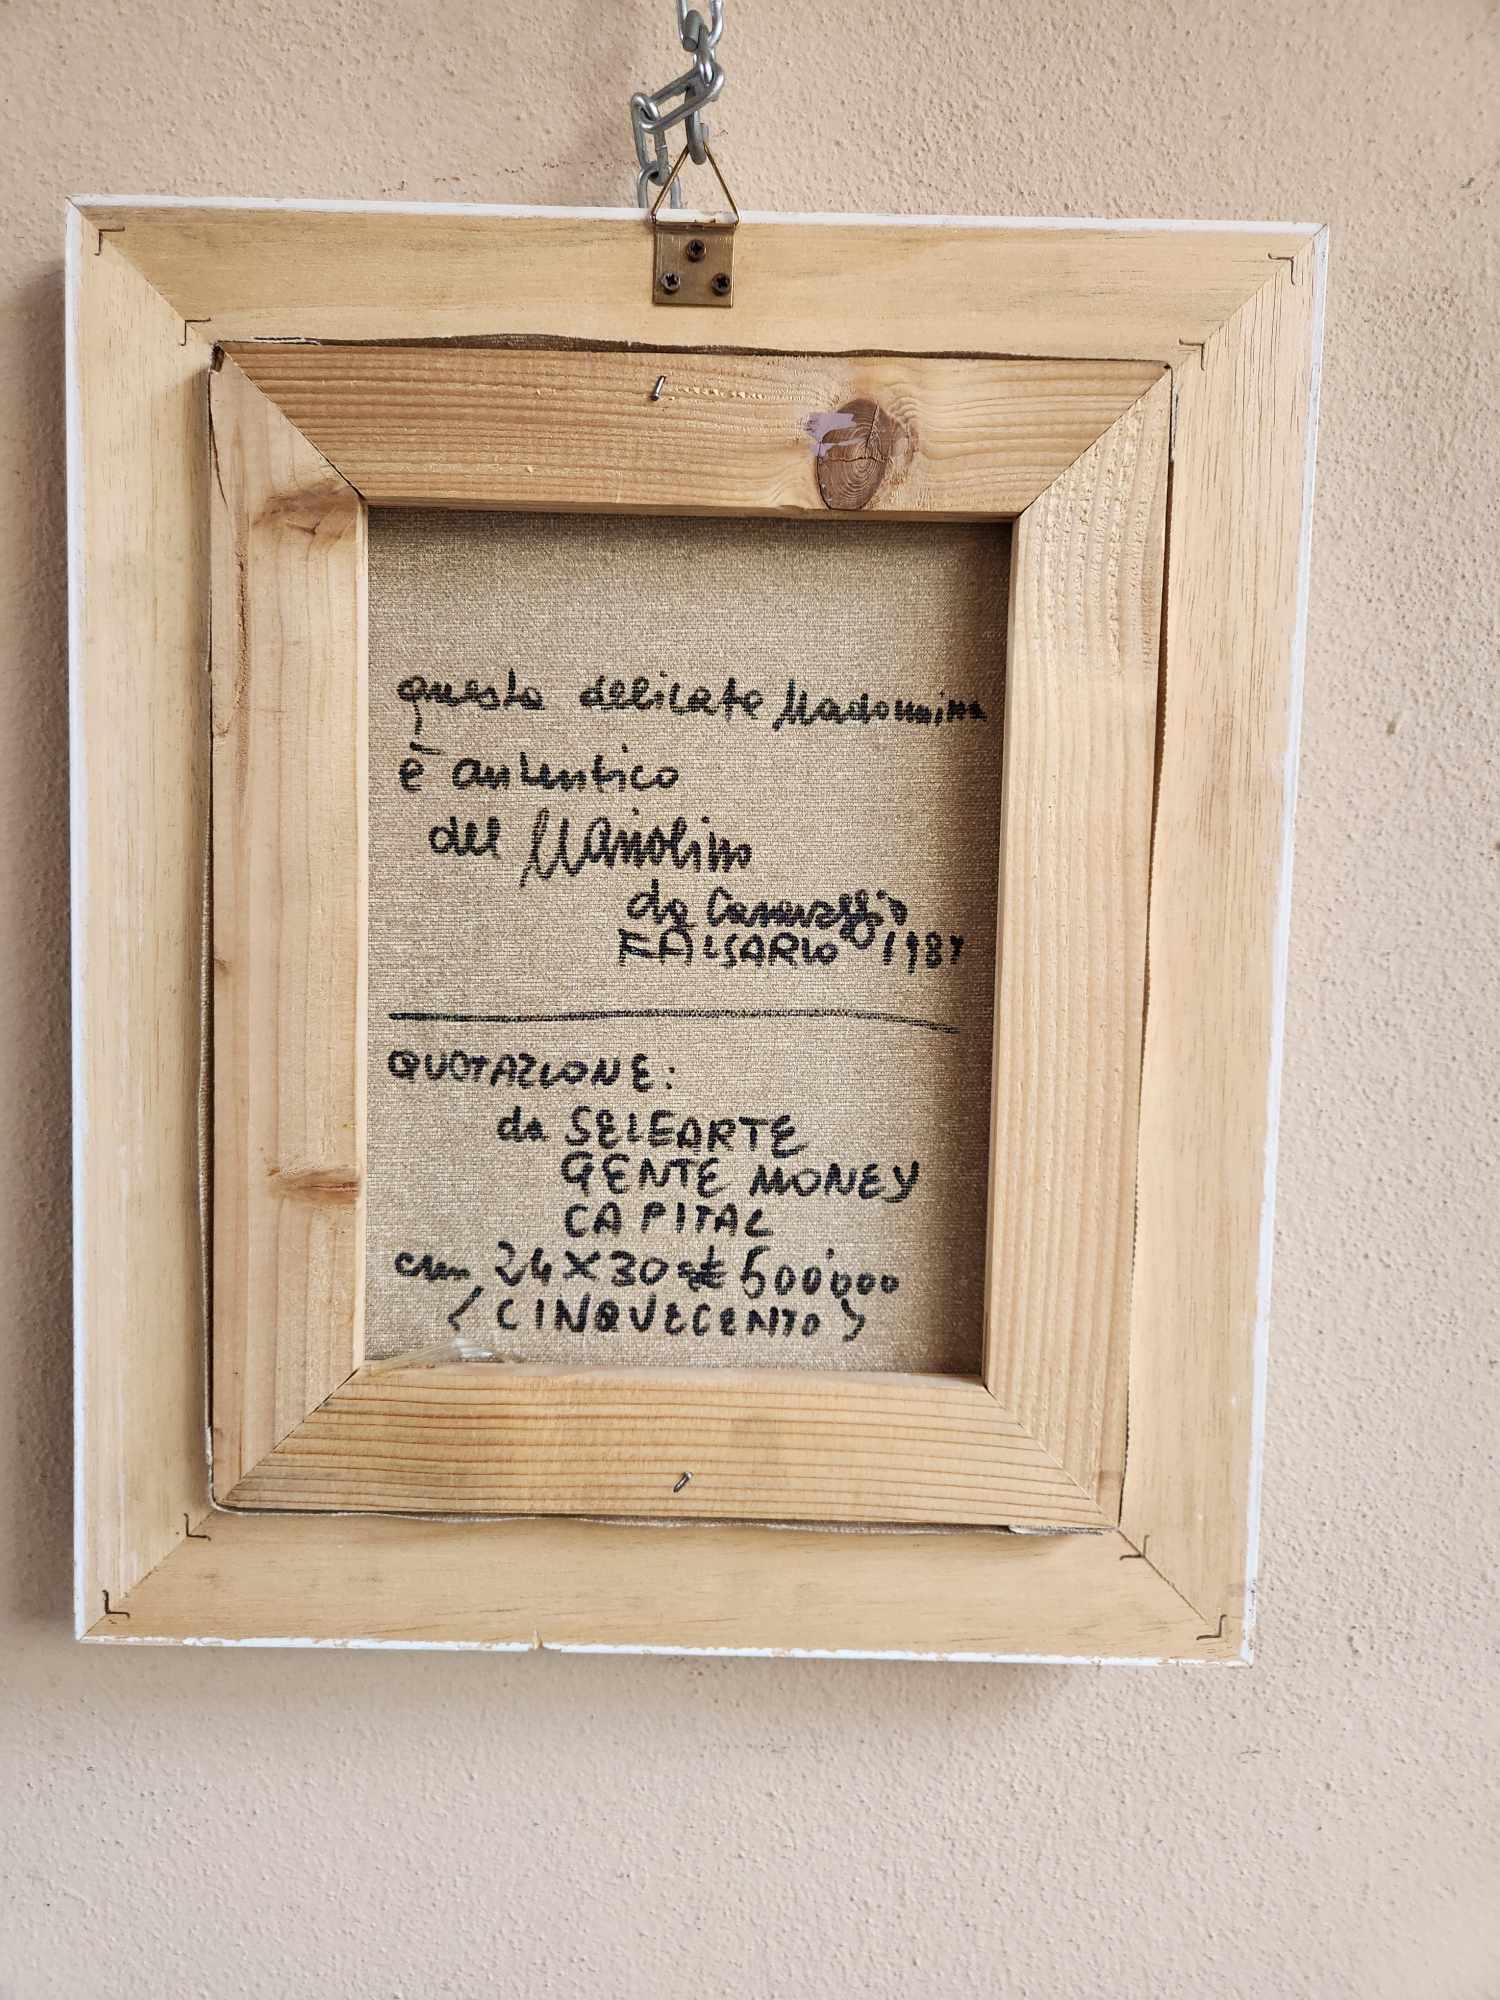 questa delicata Madonnina
è autentico
del Mariolino
da Caravaggio
FALSARIO 1987
QUOTAZIONE:
da SELEARTE
GENTE MONEY
CAPITAL
cm 24X30 500'000
(CINQUECENTO)